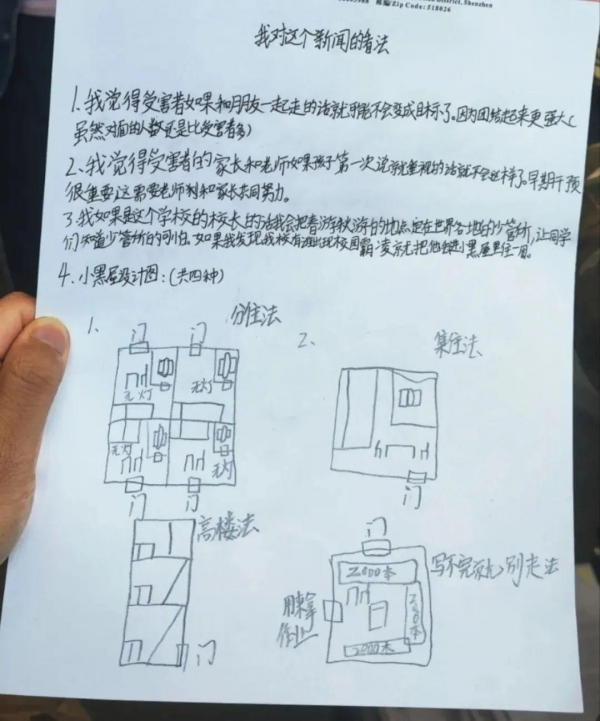 District, Shenzhen
邮编/Zip Code: 518026
我对这个新闻的看法
1. 我觉得受害者如果和朋友一起走的话就可能不会变成目标了。因为团结起来更强大(
虽然对面的人数还是比受害者多)
2. 我觉得受害者的家长和老师如果孩子第一次说就重视的话就不会这样了。早期干预
很重要这需要老师和家长共同努力。
3. 我如果是这个学校的校长的话我会把春游秋游的地点定在世界各地的少管所,让同学
们知道少管所的可怕。如果我发现我校有出现校园霸凌就把他关进小黑屋里住一周。
4. 小黑屋设计图:(共四种)
1. 门 门 分住法
2. 集住法
无灯 无灯
无灯 无灯
门 门
门
高楼法
门
门
写不完就别走法
2000本
用来拿
作业
2000本
2000本